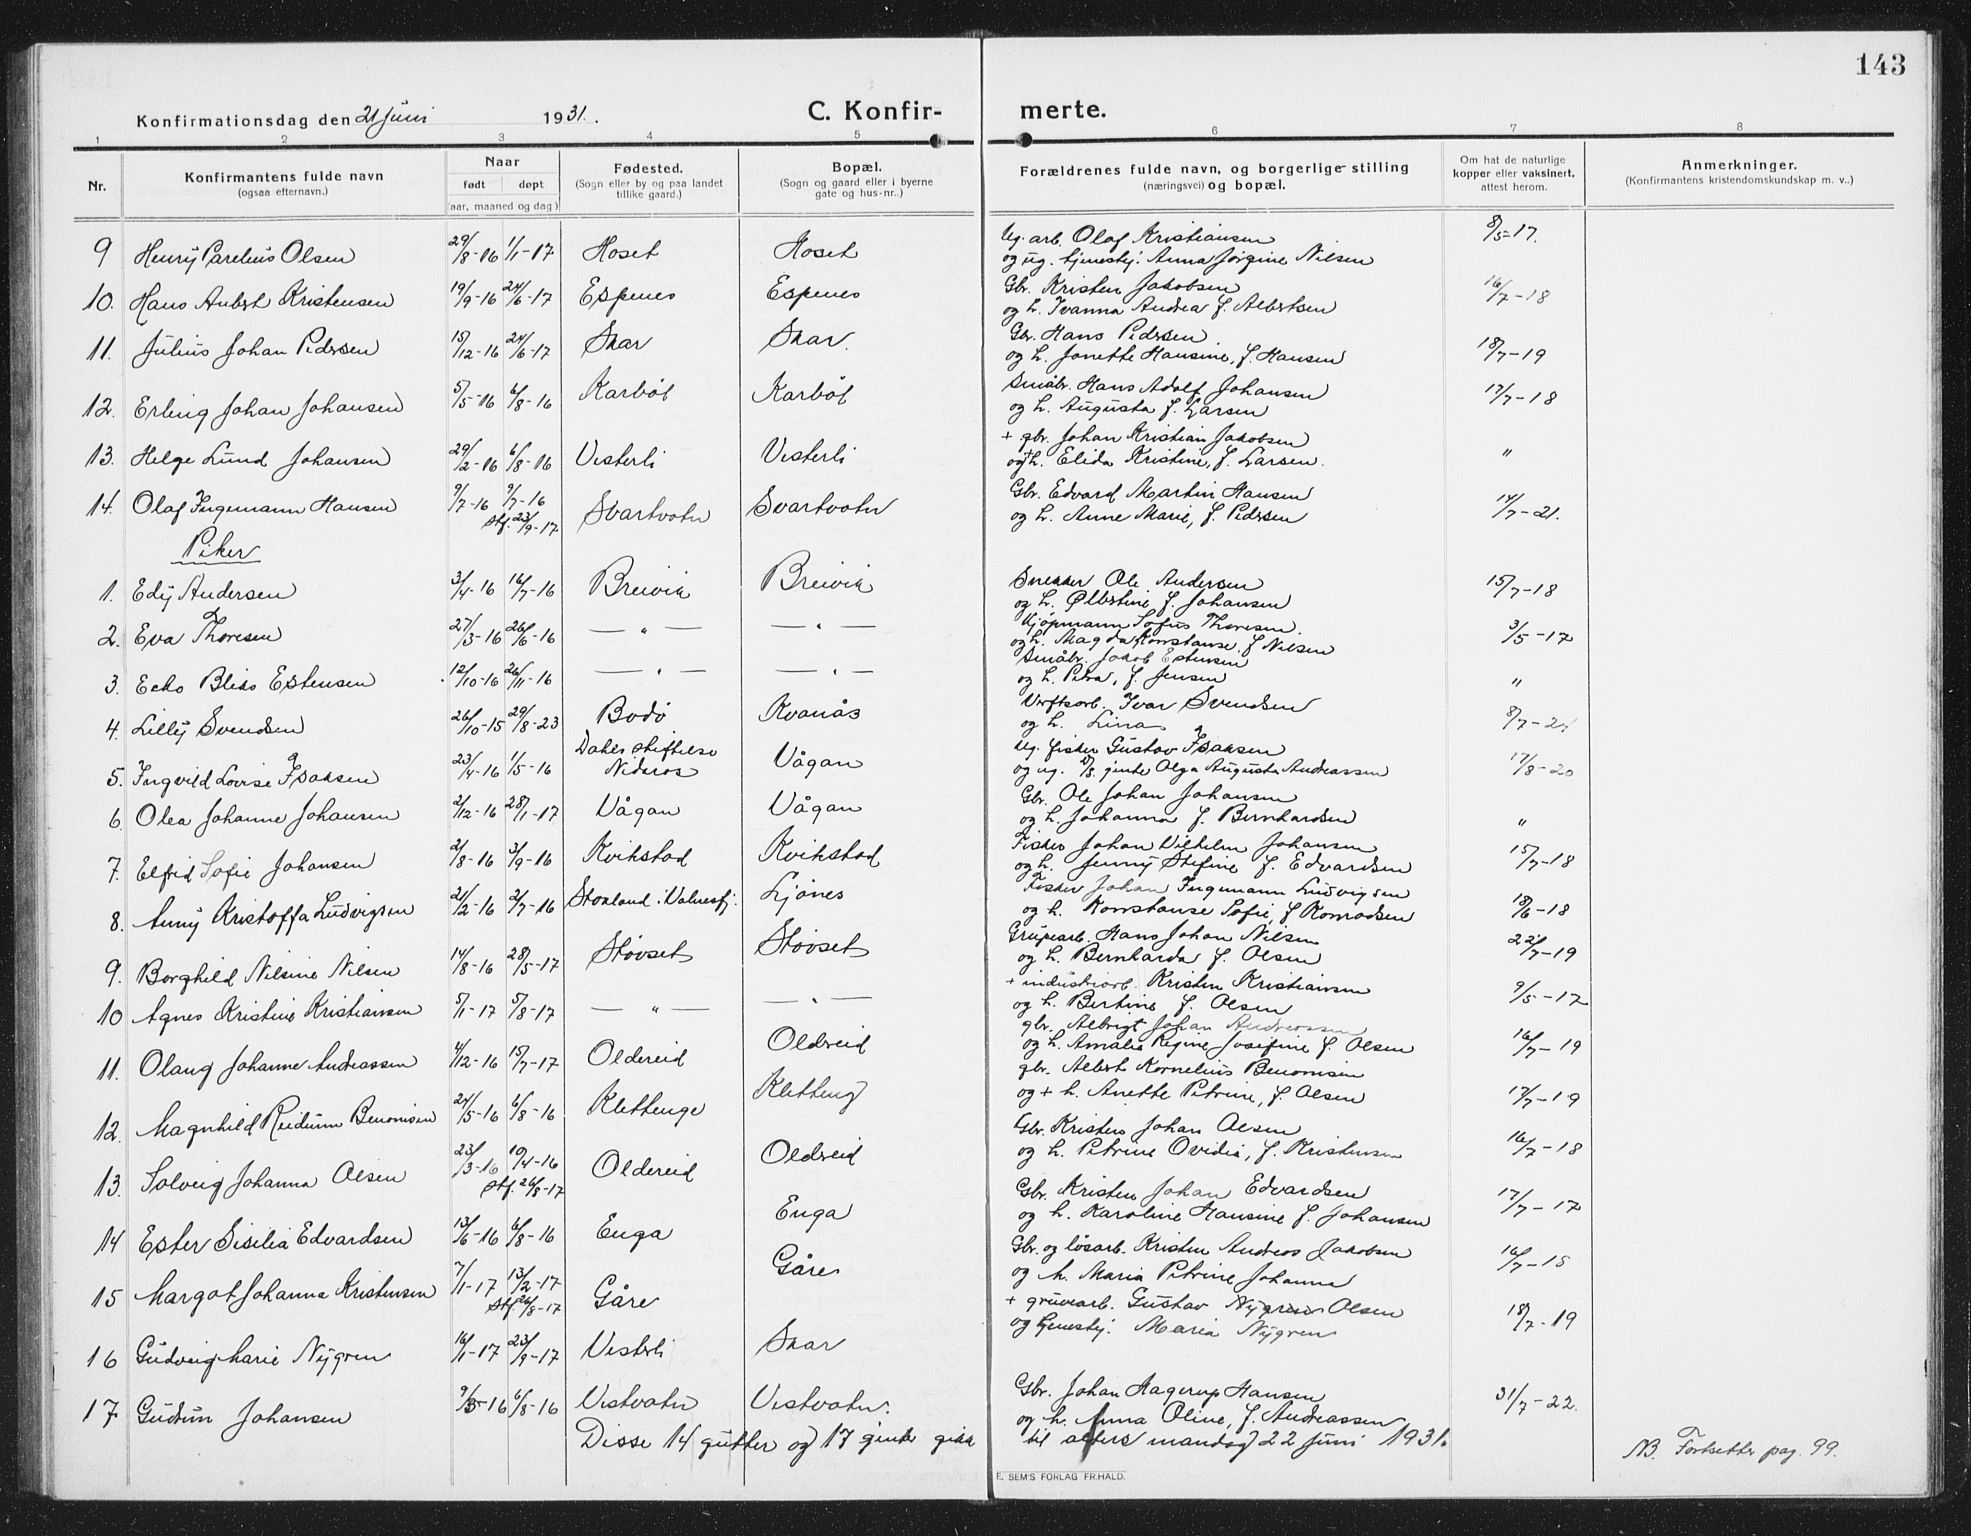 143
Konfirmationsdag den 21 juni 1931. C. Konfir- merte.
1 2 3 4 5 6 7 8
Nr. Konfirmantens fulde navn (ogsaa efternavn.) Naar født døpt (aar, maaned og dag) Fødested. (Sogn eller by og paa landet tillike gaard.) Bopæl. (Sogn og gaard eller i byerne gate og hus-nr..) Forældrenes fulde navn, og borgerlige stilling (næringsvei) og bopæl. Om hat de naturlige kopper eller vaksinert, attest herom. Anmerkninger. (Konfirmantens kristendomskundskap m. v..)
9 Henry Parelius Olsen 29/8-16 1/1-17 Hoset Hoset Ug. arb. Olaf Kristiansen 8/5-17.
og ug. tjenestpj. Anna Jørgine Nilsen
10. Hans Anbert Kristensen 19/9-16 24/6-17 Espenes Espenes Gbr. Kristen Jakobsen 16/7-18
og h. Ivanna Andrea f. Albertsen
11. Julius Johan Pedersen 15/12-16 24/6-17 Skar Skar. Gbr. Hans Pedersen 18/7-19
og h. Jonette Hansine, f. Hansen
12. Erling Johan Johansen 5/5-16 6/8-16 Karbøl Karbøl Småbr. Hans Adolf Johansen 17/7-18
og h. Augusta f. Larsen
13. Helge Lund Johansen 29/2-16 6/8-16 Vesterli Vesterli + gbr. Johan Kristian Jakobsen "
og h. Elida Kristine, f. Larsen.
14. Olaf Ingemann Hansen 9/7-16 9/7-16 Stf. 23/9-17 Svartvatn Svartvatn Gbr. Edvard Martin Hansen 14/7-21.
og h. Anne Marie, f. Pedersen
Piker
1. Edy Andersen 3/4-16 16/7-16 Breivik Breivik Snekker Ole Andersen 15/7-18
og h. Olbertine f. Johansen
2. Eva Thoresen 27/3-16 26/6-16 — " — — " — Kjøpmann Sofus Thoresen. 3/5-17
og h. Magda Konstanse, f. Nilsen
3. Ecko Bliks Estensen 12/10-16 26/11-16 — " — — " — Småbr. Jakob Estensen "
og h. Petra, f. Jensen
4. Lilly Svendsen 26/10-15 29/8-23 Bodø Kvanås Verftsarb. Ivar Svendsen 8/7-24
og h. Lina
5. Ingvild Lovise Isaksen 23/4-16 1/5-16 Dahls stiftelse Nidaros Vågan Ug. fisker Gustav Isaksen 17/8-20
og ug. pike Olga Augusta Andreassen
6. Olea Johanne Johansen 2/12-16 28/1-17 Vågan Vågan Gbr. Ole Johan Johansen "
og h. Johanna f. Bernhardsen
7. Elfrid Sofie Johansen 2/8-16 3/9-16 Kvikstad Kvikstad Fisker Johan Vilhelm Johansen 15/7-18
og h. Jenny Stefine f. Edvardsen
8. Anny Kristoffa Ludvigsen 21/2-16 2/7-16 Storland i Valnesfj. Ljønes Fisker Johan Ingemann Ludvigsen 18/6-18
og h. Konstanse Sofie, f. Konradsen
9. Borghild Nilsine Nilsen 14/8-16 28/5-17 Støvset Støvset Grubearb. Hans Johan Nilsen 22/7-19
og h. Bernharda f. Olsen
10 Agnes Kristine Kristiansen 5/1-17 5/8-17 — " — — " — + industriarb. Kristen Kristiansen 9/5-17
og h. Bertine f. Olsen
11. Olaug Johanne Andreassen 4/12-16 15/7-17 Oldereid Oldreid gbr. Albrigt Johan Andreassen 16/7-19
og h. Amalie Regine Josefine f. Olsen
12. Magnhild Reidunn Benonisen 24/5-16 6/8-16 Klettenge Kletteng gbr. Albert Kornelius Benonisen 17/7-19
og + h. Anette Petrine, f. Olsen
13. Solveig Johanna Olsen 23/3-16 19/4-16 Stf. 26/8-17 Oldereid Oldreid Gbr. Kristen Johan Olsen 16/7-18
og h. Petrine Ovidia, f. Kristensen
14 Ester Sisilia Edvardsen 13/6-16 6/8-16 Enga Enga Gbr. Kristen Johan Edvardsen 17/7-17
og h. Karoline Hansine f. Johansen
15 Margot Johanna Kristensen 7/1-17 13/2-17 Stf. 26/8-17 Gåre Gåre Gbr. og løsarb. Kristen Andreas Jakobsen 16/7-15
og h. Maria Petrine Johanna
16 Gudveig Marie Nygren 16/1-17 23/9-17 Vesterli Skar + gruvearb. Gustav Nygren Olsen 18/7-19
og tjenestpj. Maria Nygren
17 Gudrun Johansen 9/3-16 6/8-16 Vestvatn Vestvatn. Gbr. Johan Hagerup Hansen 31/7-22.
og h. Anna Oline, f. Andreassen
Disse 14 gutter og 17 jenter gikk til alters mandag 22 juni 1931.
NB. Fortsetter pag. 99.
E. SEM'S FORLAG FR.HALD.